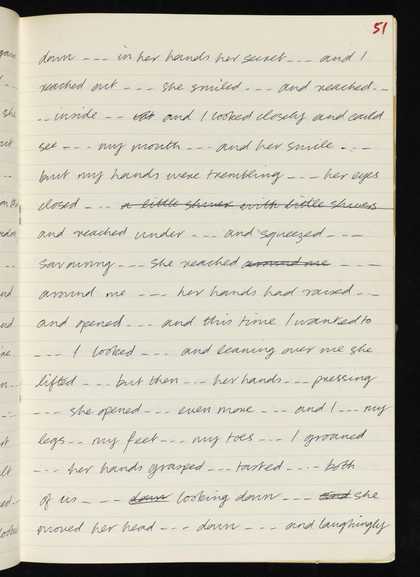 51
down --- in her hands her secret --- and I
reached out --- she smiled --- and reached --
-- inside -- out and I looked closely and could
see --- my mouth --- and her smile ---
but my hands were trembling --- her eyes
closed --- a little shiver with little shivers
and reached under --- and squeezed ---
savouring --- she reached around me ---
around me --- her hands had raised ---
and opened --- and this time I wanted to
--- I looked --- and leaning over me she
lifted --- but then --- her hands --- pressing
--- she opened --- even more --- and I --- my
legs -- my feet --- my toes --- I groaned
--- her hands grasped --- tasted --- both
of us --- down looking down --- and she
moved her head --- down --- and laughingly